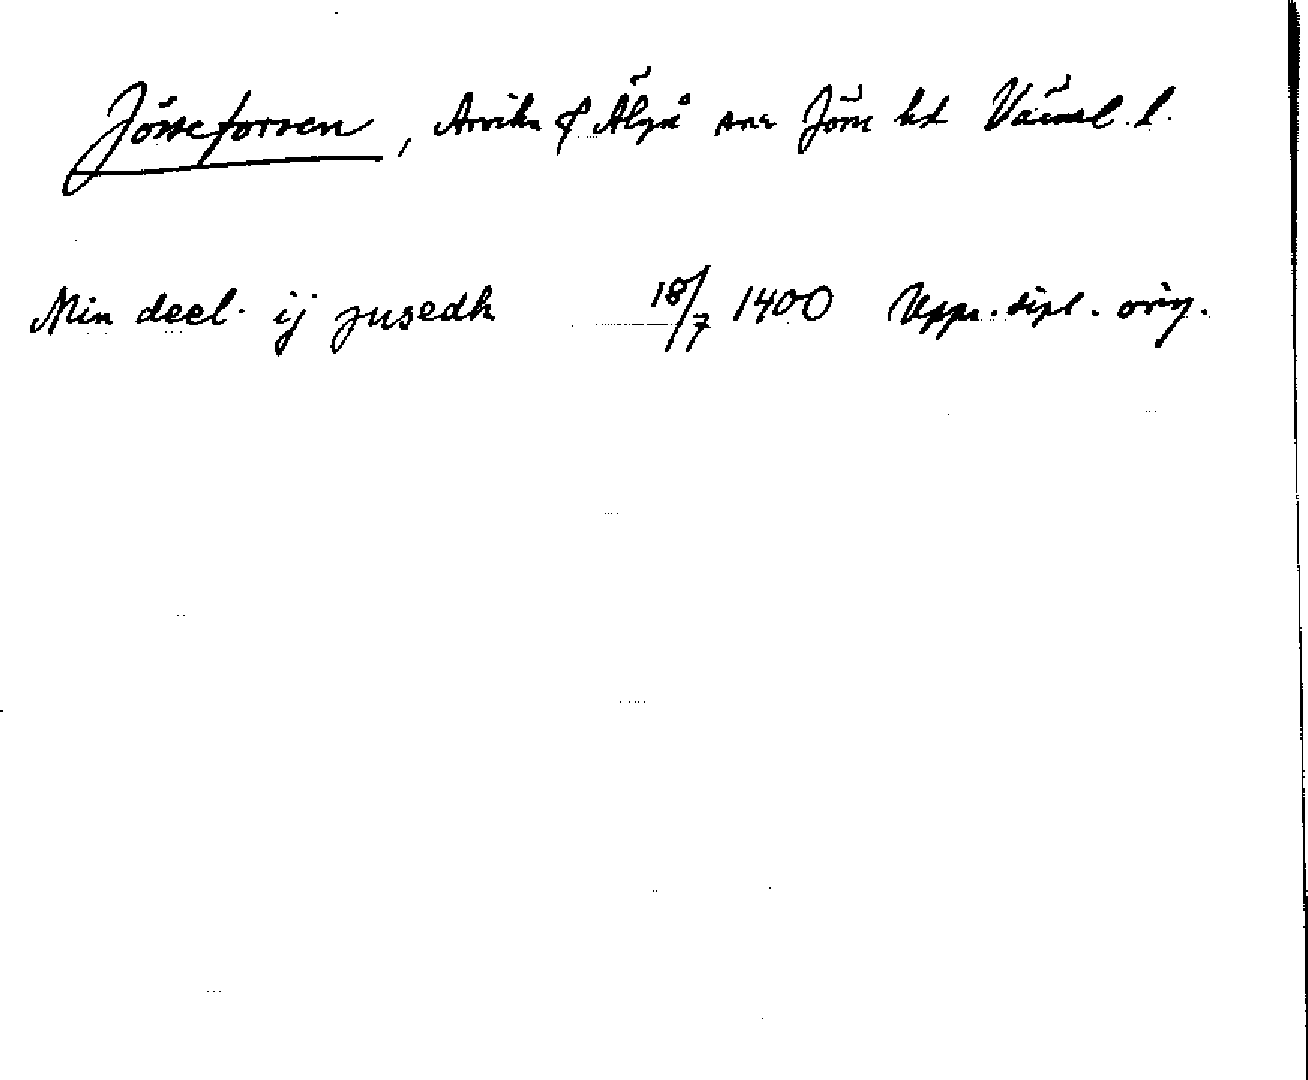 Jösseforsen, Arvika o Älgå snr Jösse hd Värml. l.
Min deel ij jusedh 18/7 1400 Upps. dipl. orig.